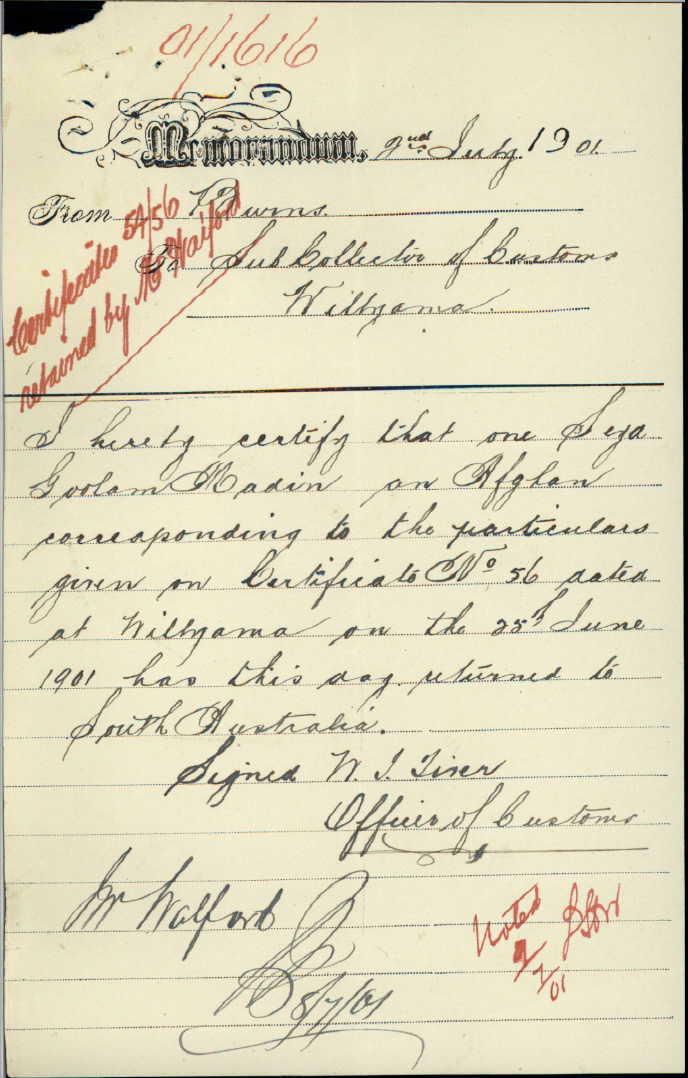 01/1616
Memorandum, 2nd July 1901.
From Burns.
To Sub Collector of Customs
Willyama.
Certificates 54/56
retained by Mr Walford
I hereby certify that one Seyd
Goolam Kadin an Afghan
corresponding to the particulars
given on Certificate No 56 dated
at Willyama on the 25th June
1901 has this day returned to
South Australia.
Signed W. J.
Officer of Customs
Mr Walford
5/7/01
Noted
9/7/01